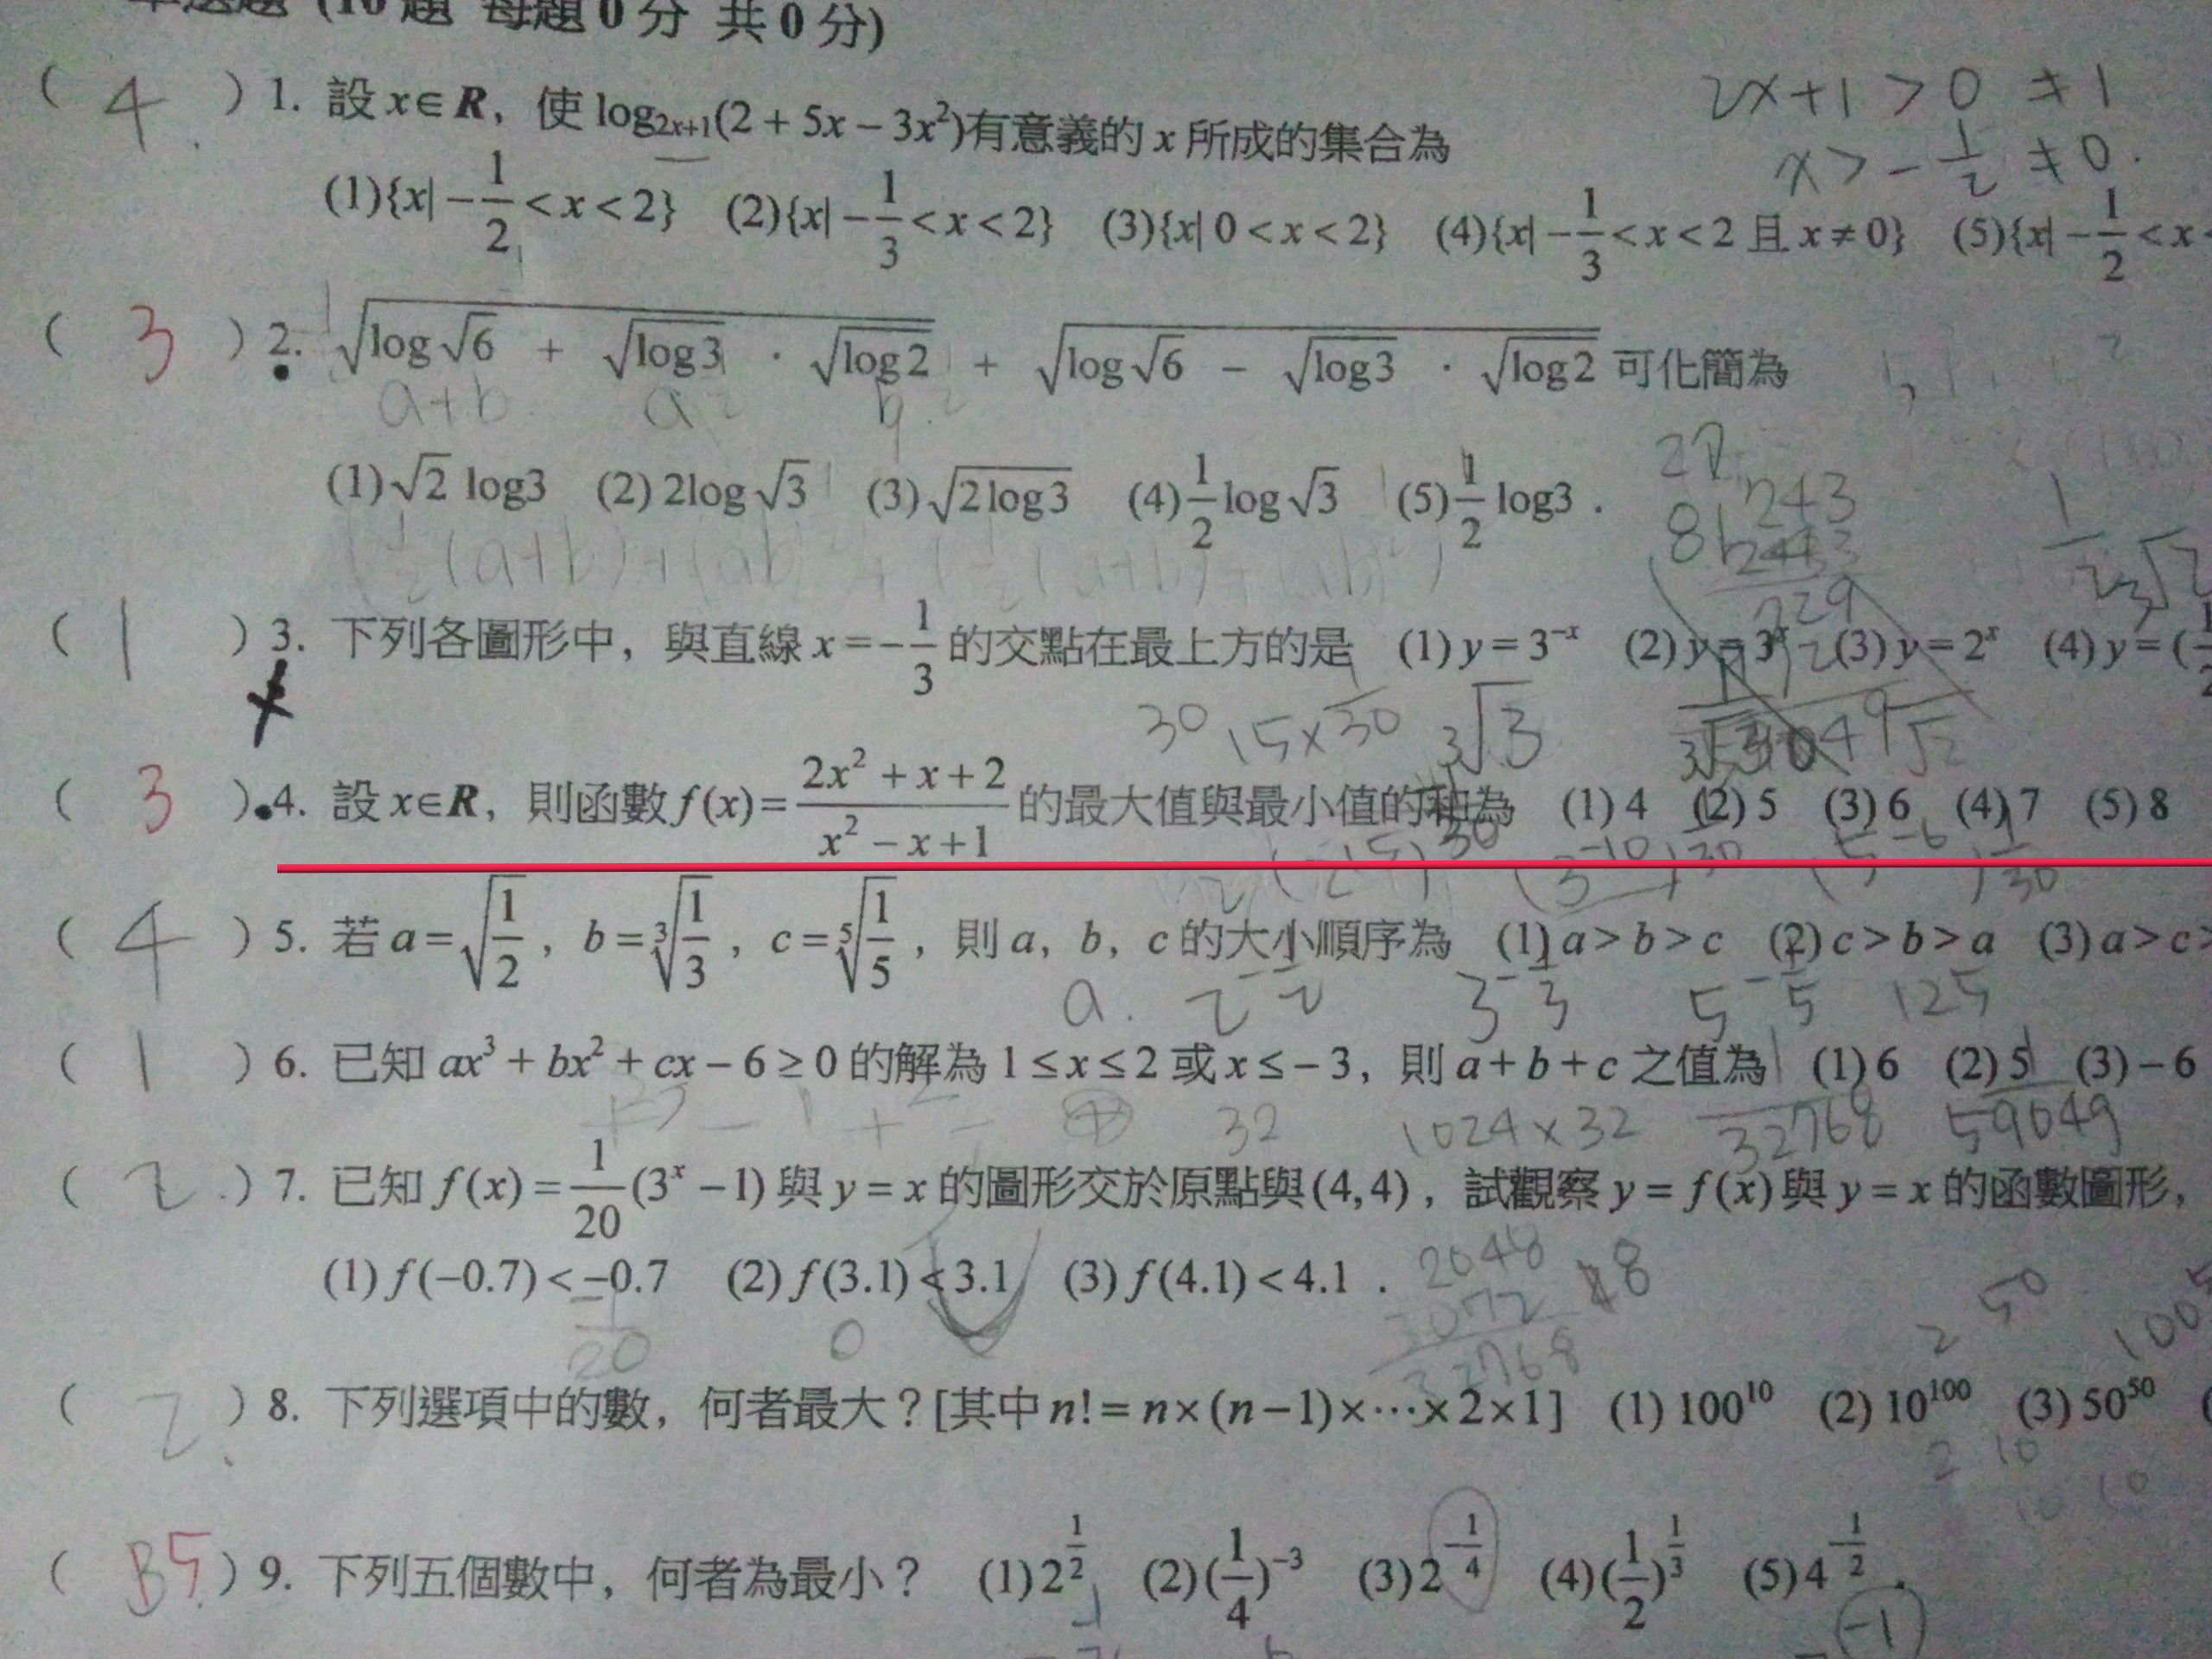 (10題 每題0分 共0分)
( 4 ) 1. 設 x∈R，使 log₂ₓ₊₁(2 + 5x − 3x²)有意義的 x 所成的集合為
2x+1 > 0 ≠ 1
x > −1/2 ≠ 0.
(1){x| −1/2 < x < 2} (2){x| −1/3 < x < 2} (3){x| 0 < x < 2} (4){x| −1/3 < x < 2 且 x ≠ 0} (5){x| −1/2 < x
( 3 ) 2. √(log√6 + √log3 · √log2) + √(log√6 − √log3 · √log2) 可化簡為
a+b a² b²
(1)√2 log3 (2) 2log√3 (3)√(2log3) (4)1/2 log√3 (5)1/2 log3．
27
81 243
729
( 1 ) 3. 下列各圖形中，與直線 x = −1/3 的交點在最上方的是 (1) y = 3⁻ˣ (2) y = 3ˣ (3) y = 2ˣ (4) y = (1/2
30 15×1/30 ³√3
( 3 ) 4. 設 x∈R，則函數 f(x) = (2x² + x + 2)/(x² − x + 1) 的最大值與最小值的和為 (1) 4 (2) 5 (3) 6 (4) 7 (5) 8
( 4 ) 5. 若 a = √(1/2)，b = ³√(1/3)，c = ⁵√(1/5)，則 a，b，c 的大小順序為 (1) a > b > c (2) c > b > a (3) a > c >
a. 2^(−1/2) 3^(−1/3) 5^(−1/5) 125
( 1 ) 6. 已知 ax³ + bx² + cx − 6 ≥ 0 的解為 1 ≤ x ≤ 2 或 x ≤ −3，則 a + b + c 之值為 (1) 6 (2) 5 (3) −6
32 1024×32 1/32768 1/59049
( 2 ) 7. 已知 f(x) = 1/20 (3ˣ − 1) 與 y = x 的圖形交於原點與(4, 4)，試觀察 y = f(x) 與 y = x 的函數圖形，
(1) f(−0.7) < −0.7 (2) f(3.1) < 3.1 (3) f(4.1) < 4.1．
2048
3072
32768
( 2 ) 8. 下列選項中的數，何者最大？[其中 n! = n×(n−1)×⋯×2×1] (1) 100¹⁰ (2) 10¹⁰⁰ (3) 50⁵⁰
( B5 ) 9. 下列五個數中，何者為最小？ (1) 2^(1/2) (2) (1/4)⁻³ (3) 2^(−1/4) (4) (1/2)^(1/3) (5) 4^(−1/2)．
−1